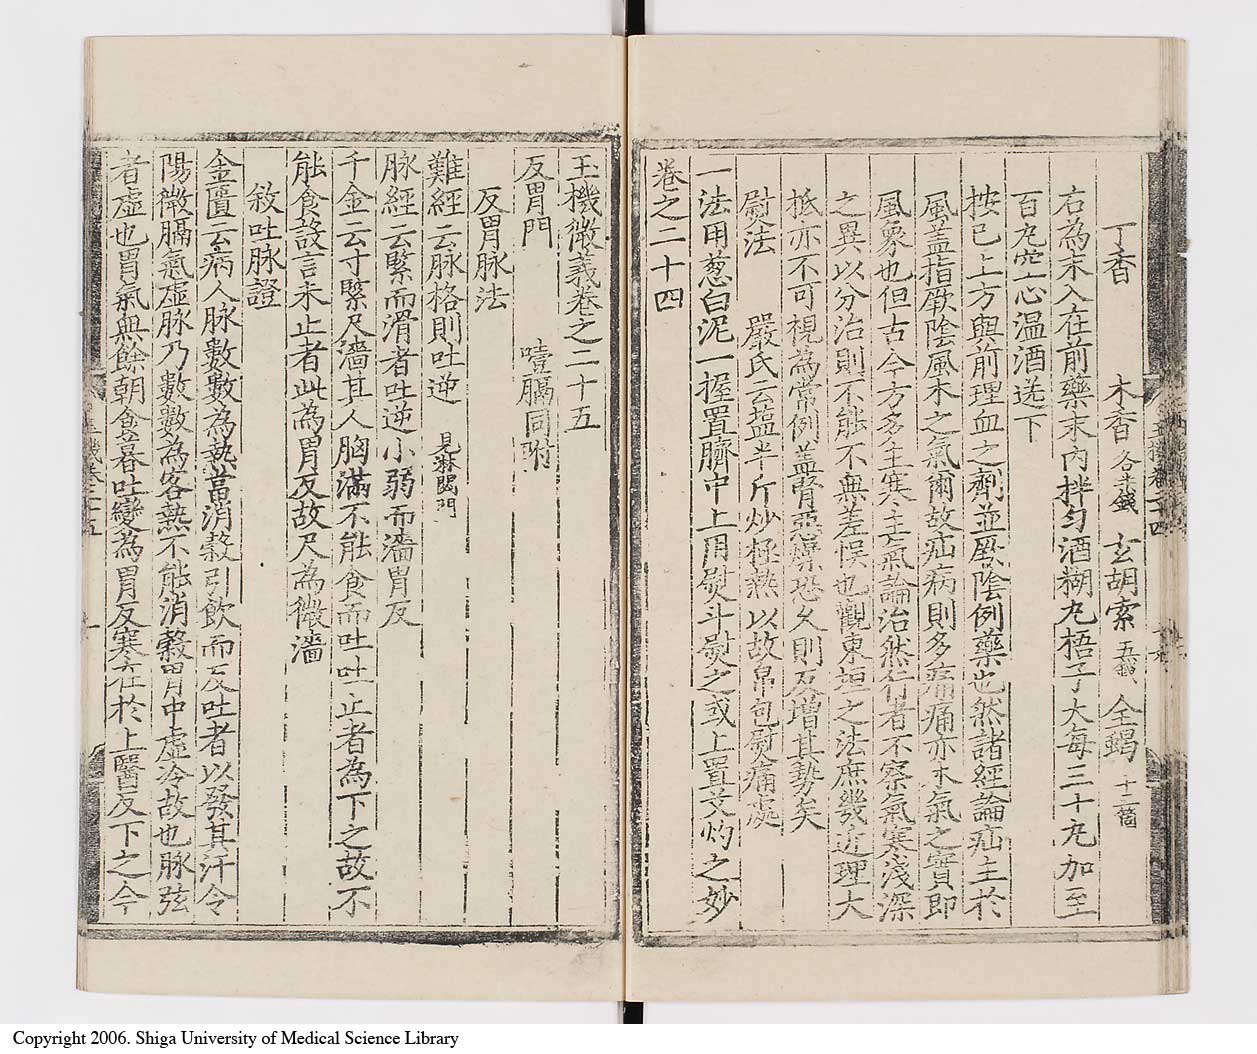 丁香　木香各半錢　玄胡索五錢　全蝎十二箇
右為末入在前藥末內拌匀酒糊丸梧子大每三十丸加至
百丸空心温酒送下
按已上方與前理血之劑並厥陰例藥也然諸經論疝主於
風盖指厥陰風木之氣爾故疝病則多痛痛亦木氣之實即
風象也但古今方多主寒主氣論治然行者不察氣寒淺深
之異以分治則不能不無差悮也觀東垣之法庶幾近理大
抵亦不可視為常例盖腎惡燥恐久則反增其勢矣
熨法　嚴氏云塩半斤炒極熱以故帛包熨痛處
一法用葱白泥一握置臍中上用熨斗熨之或上置艾灼之妙
卷之二十四
玉機微義卷之二十五
反胃門　噎膈同附
反胃脉法
難經云脉格則吐逆　見淋閟門
脉經云緊而滑者吐逆小弱而濇胃反
千金云寸緊尺濇其人胸滿不能食而吐吐止者為下之故不
能食設言未止者此為胃反故尺為微濇
敘吐脉證
金匱云病人脉數數為熱當消穀引飲而反吐者以發其汗令
陽微膈氣虛脉乃數數為客熱不能消穀胃中虛冷故也脉弦
者虛也胃氣無餘朝食暮吐變為胃反寒在於上醫反下之今
Copyright 2006. Shiga University of Medical Science Library